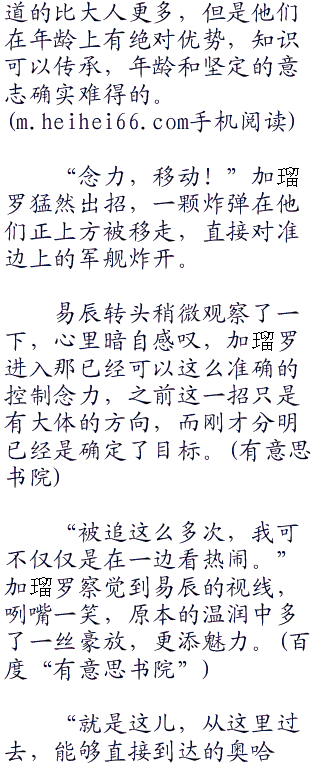 道的比大人更多，但是他们
在年龄上有绝对优势，知识
可以传承，年龄和坚定的意
志确实难得的。
(m.heihei66.com手机阅读)
“念力，移动！”加瑠
罗猛然出招，一颗炸弹在他
们正上方被移走，直接对准
边上的军舰炸开。
易辰转头稍微观察了一
下，心里暗自感叹，加瑠罗
进入那已经可以这么准确的
控制念力，之前这一招只是
有大体的方向，而刚才分明
已经是确定了目标。(有意思
书院)
“被追这么多次，我可
不仅仅是在一边看热闹。”
加瑠罗察觉到易辰的视线，
咧嘴一笑，原本的温润中多
了一丝豪放，更添魅力。(百
度“有意思书院”)
“就是这儿，从这里过
去，能够直接到达的奥哈